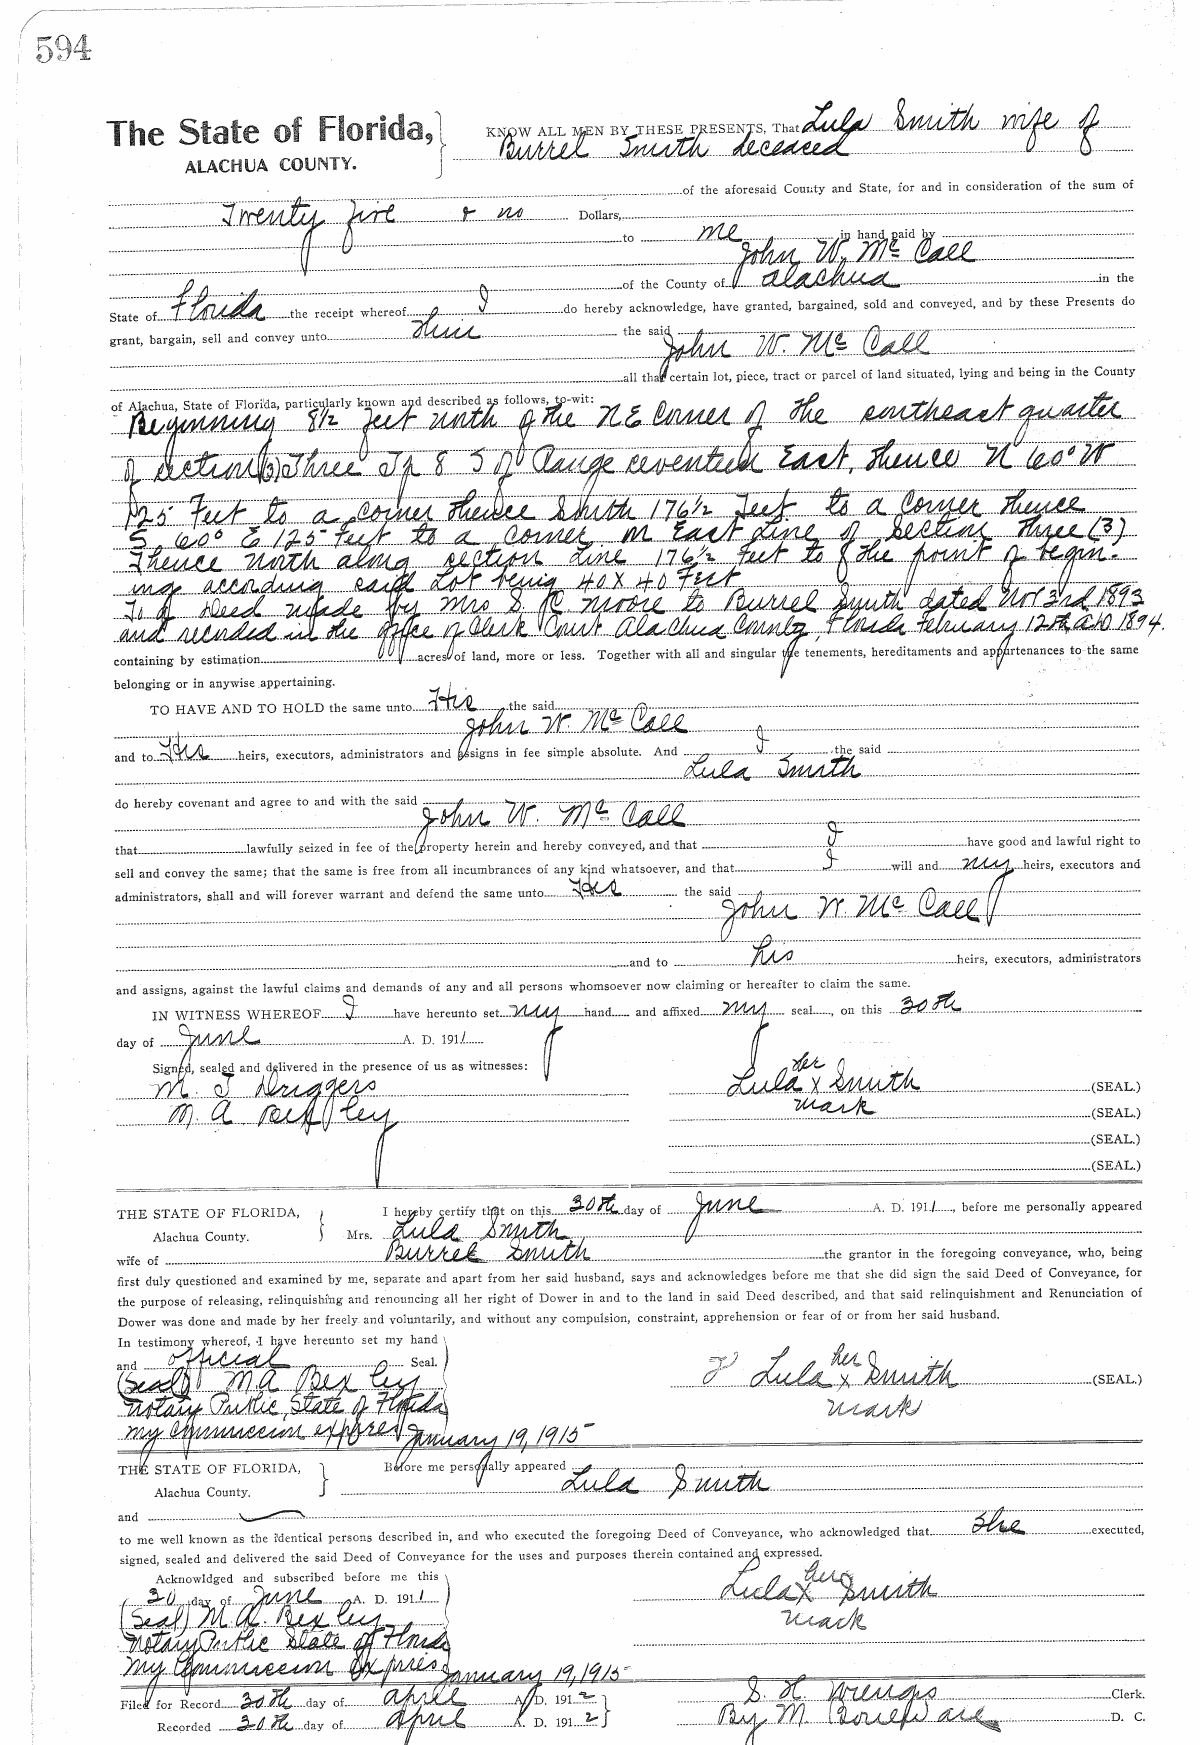 594
The State of Florida,
ALACHUA COUNTY.
KNOW ALL MEN BY THESE PRESENTS, That Lula Smith wife of
Burrel Smith deceased
of the aforesaid County and State, for and in consideration of the sum of
Twenty five & no Dollars,
to me in hand paid by
John W. Mc Call
of the County of Alachua in the
State of Florida the receipt whereof I do hereby acknowledge, have granted, bargained, sold and conveyed, and by these Presents do
grant, bargain, sell and convey unto him the said
John W. Mc Call
all that certain lot, piece, tract or parcel of land situated, lying and being in the County
of Alachua, State of Florida, particularly known and described as follows, to-wit:
Beginning 8½ feet north of the NE Corner of the southeast quarter
of section (3) Three Tp 8 S of Range seventeen East, thence N 60° W
125 Feet to a corner thence South 176½ Feet to a Corner thence
S. 60° E 125 feet to a corner on East Line of Section three (3)
Thence North along section Line 176½ feet to the point of begin-
ing according said Lot being 40 x 40 Feet
To a Deed made by Mrs S. R Moore to Burrel Smith dated Nov 3rd 1893
and recorded in the office of Clerk Court Alachua County, Florida February 12th A D 1894.
containing by estimation acres of land, more or less. Together with all and singular the tenements, hereditaments and appurtenances to the same
belonging or in anywise appertaining.
TO HAVE AND TO HOLD the same unto His the said
John W. Mc Call
and to His heirs, executors, administrators and assigns in fee simple absolute. And I the said
Lula Smith
do hereby covenant and agree to and with the said
John W. Mc Call
that lawfully seized in fee of the property herein and hereby conveyed, and that I have good and lawful right to
sell and convey the same; that the same is free from all incumbrances of any kind whatsoever, and that I will and my heirs, executors and
administrators, shall and will forever warrant and defend the same unto His the said
John W. Mc Call
and to his heirs, executors, administrators
and assigns, against the lawful claims and demands of any and all persons whomsoever now claiming or hereafter to claim the same.
IN WITNESS WHEREOF I have hereunto set my hand and affixed my seal, on this 30th
day of June A. D. 1911
Signed, sealed and delivered in the presence of us as witnesses:
M. J Driggers
M. A Bexley
her
Lula x Smith (SEAL.)
mark (SEAL.)
(SEAL.)
(SEAL.)
THE STATE OF FLORIDA,
Alachua County.
I hereby certify that on this 30th day of June A. D. 1911, before me personally appeared
Mrs. Lula Smith
wife of Burrel Smith the grantor in the foregoing conveyance, who, being
first duly questioned and examined by me, separate and apart from her said husband, says and acknowledges before me that she did sign the said Deed of Conveyance, for
the purpose of releasing, relinquishing and renouncing all her right of Dower in and to the land in said Deed described, and that said relinquishment and Renunciation of
Dower was done and made by her freely and voluntarily, and without any compulsion, constraint, apprehension or fear of or from her said husband.
In testimony whereof, I have hereunto set my hand
and official Seal.
(Seal) M A Bexley
Notary Public, State of Florida
my commission expires January 19, 1915
her
Lula x Smith (SEAL.)
mark
THE STATE OF FLORIDA,
Alachua County.
Before me personally appeared
Lula Smith
and
to me well known as the identical persons described in, and who executed the foregoing Deed of Conveyance, who acknowledged that She executed,
signed, sealed and delivered the said Deed of Conveyance for the uses and purposes therein contained and expressed.
Acknowldged and subscribed before me this
30 day of June A. D. 1911
(Seal) M. A. Bexley
Notary Public State of Florida
My Commission Expires January 19, 1915
her
Lula x Smith
mark
Filed for Record 30th day of April A. D. 1912
Recorded 30th day of April A. D. 1912
S. H. Clerk.
By M. D. C.